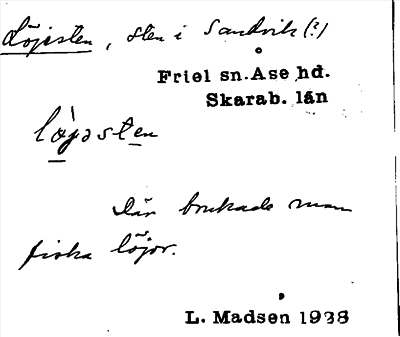 Löjesten, sten i Sandvik (?)
Friel sn. Åse hd.
Skarab. län
löjəsten
Där brukade man
fiska löjor.
L. Madsen 1938